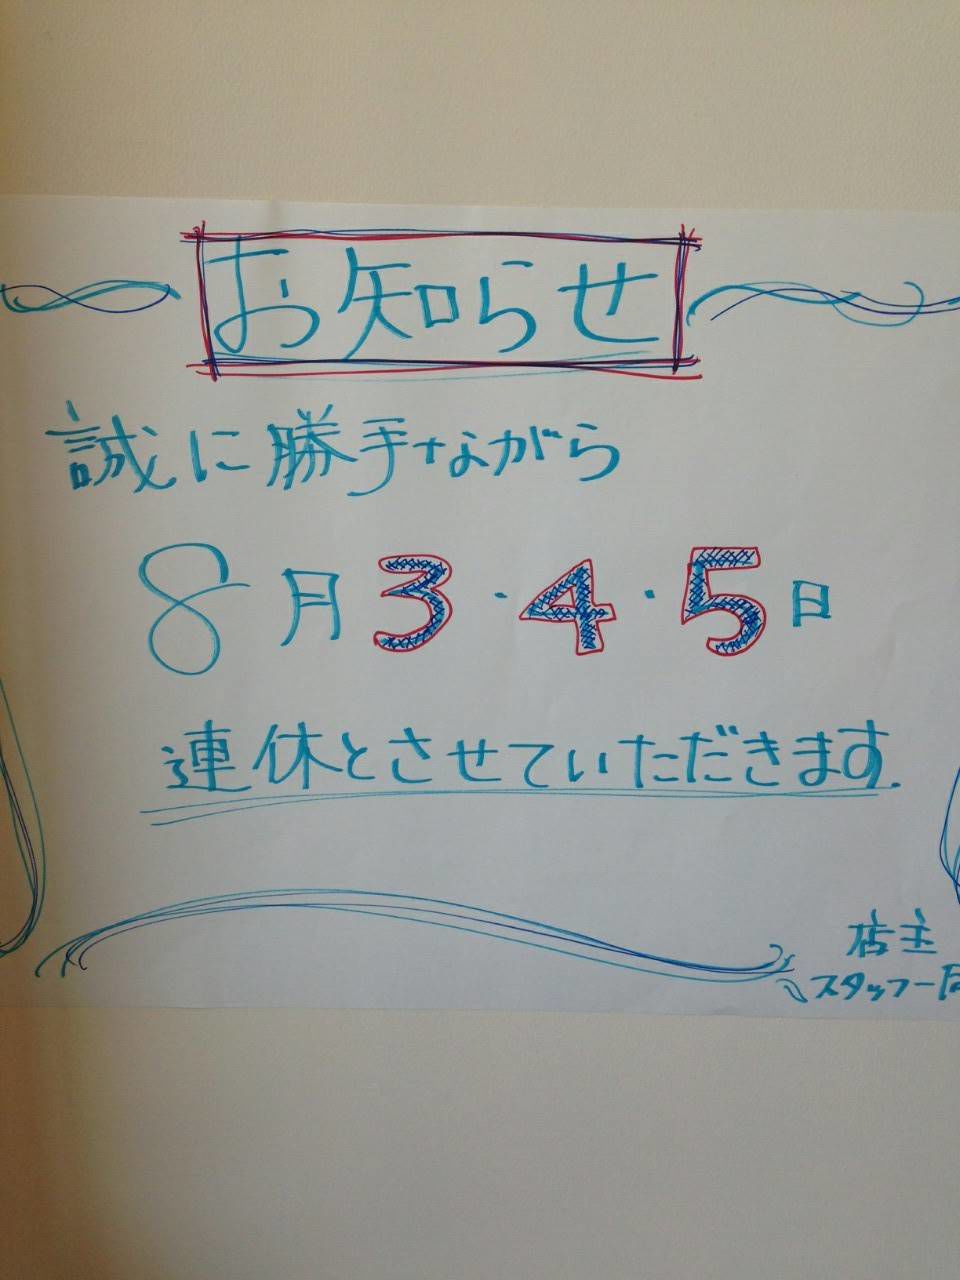 お知らせ
誠に勝手ながら
8月3・4・5日
連休とさせていただきます.
店主
スタッフ一同